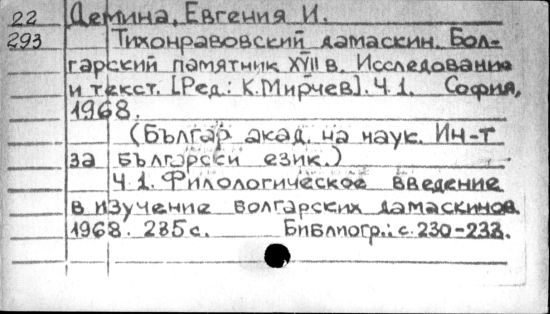 22 Демина, Евгения И.
293 Тихонравовский дамаскин. Бол-
гарский памятник XVII в. Исследование
и текст. [Ред.: К. Мирчев]. Ч. 1. София,
1968.
(Българ. акад. на наук. Ин-т
за български език.)
Ч. 1. Филологическое введение
в изучение болгарских дамаскинов.
1968. 235 с. Библиогр.: с. 230-233.